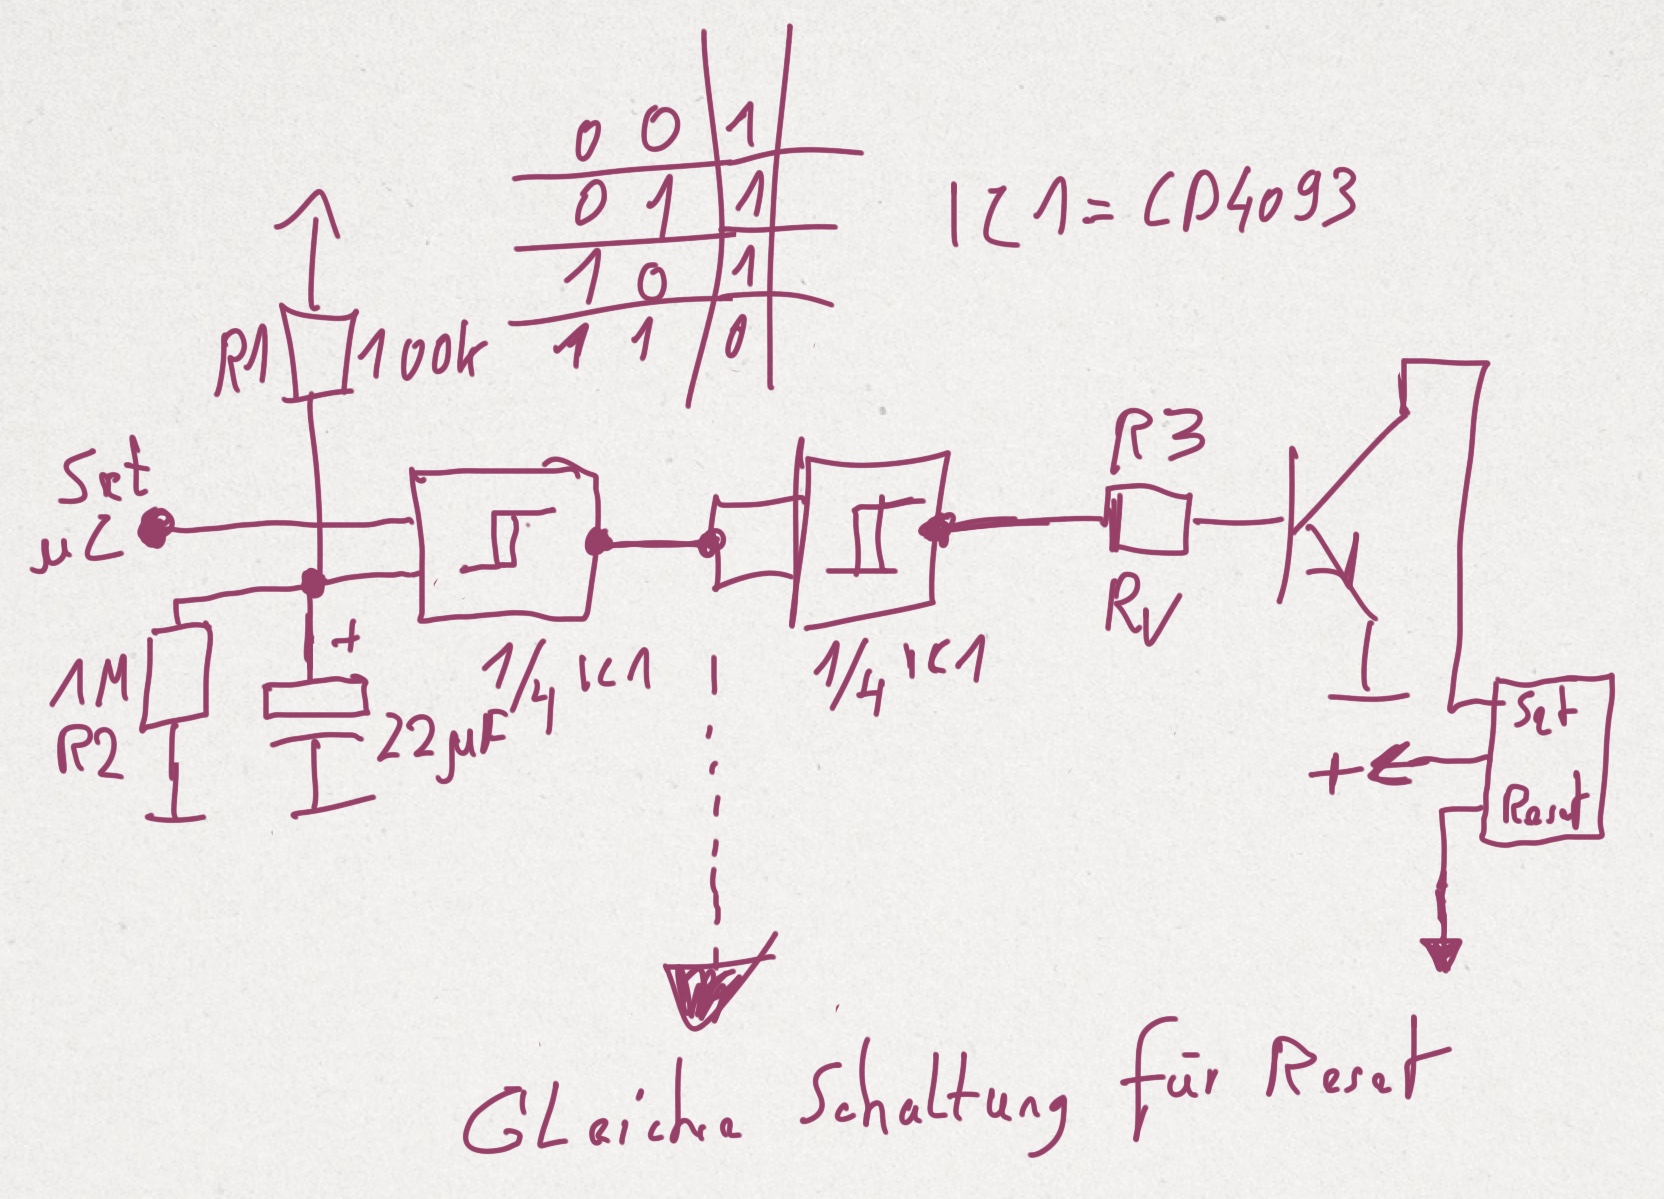 0 0 1
0 1 1
1 0 1
1 1 0
IC1 = CD4093
R1 100k
Set
µC
R3
RV
1/4 IC1
1/4 IC1
+
1M
R2
22µF
Set
+
Reset
GLeiche Schaltung für Reset